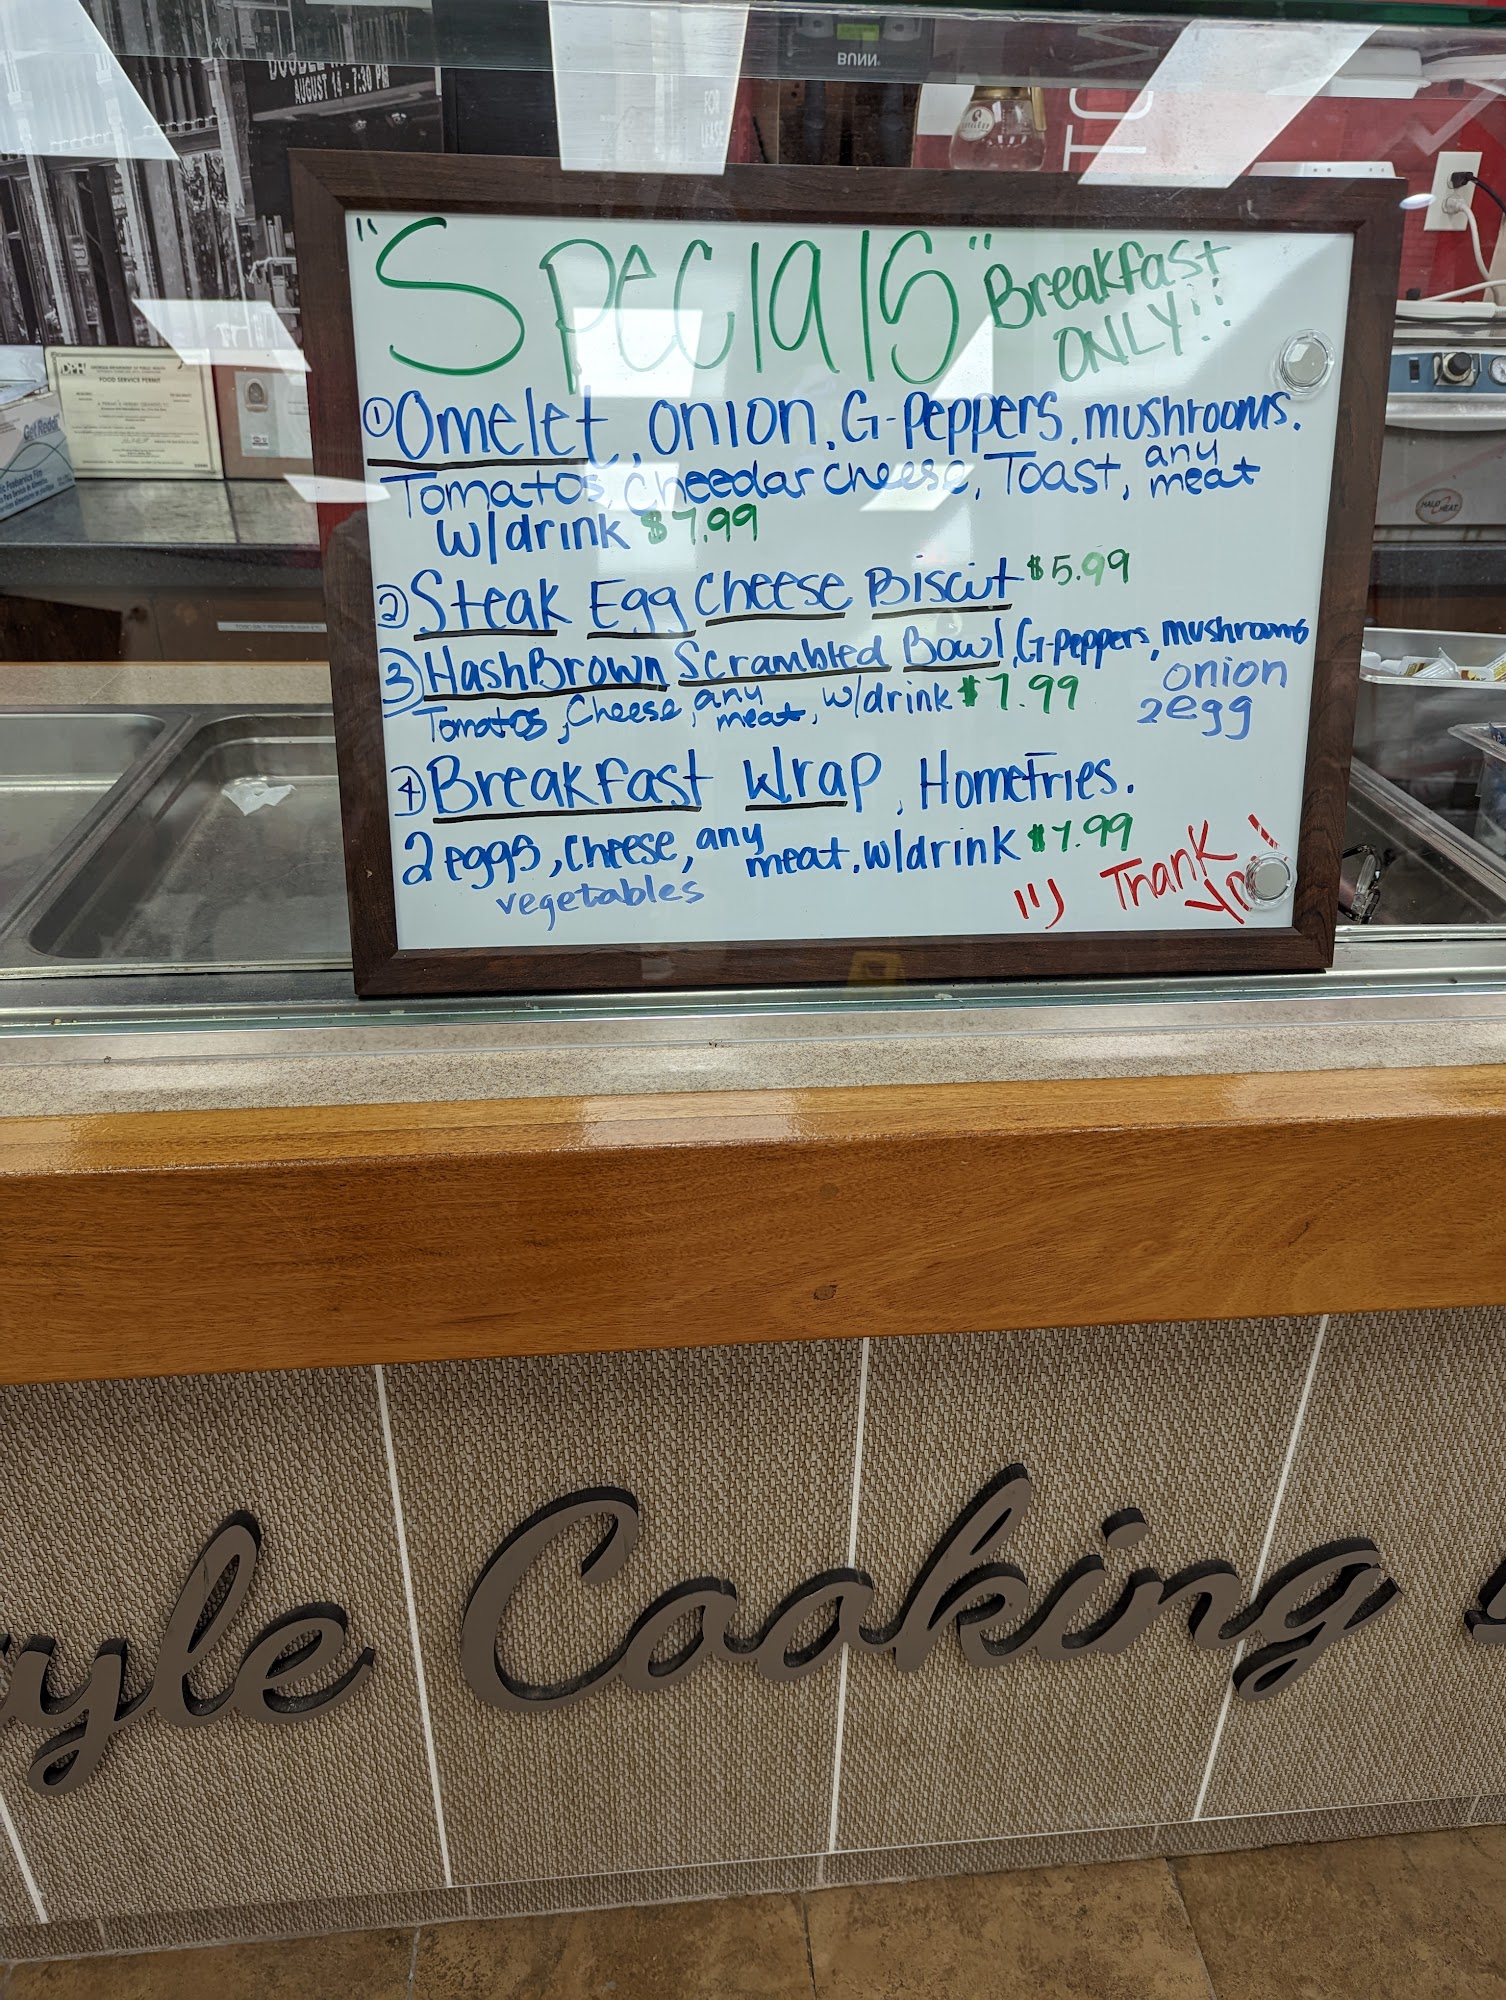 BUNN
AUGUST 14 - 7:30 PM
FOR
LEASE
DPH
FOOD SERVICE PERMIT
"Specials" Breakfast
ONLY!!
① Omelet, onion, G-Peppers, mushrooms.
Tomatos, Cheedar Cheese, Toast, any meat
w/drink $7.99
② Steak Egg Cheese Biscut $5.99
③ HashBrown Scrambled Bowl, G-Peppers, mushrooms
onion
Tomatos, Cheese, any meat, w/drink $7.99 2egg
④ Breakfast Wrap, HomeFries.
2 eggs, cheese, any meat, w/drink $7.99
vegetables
Thank
yle Cooking